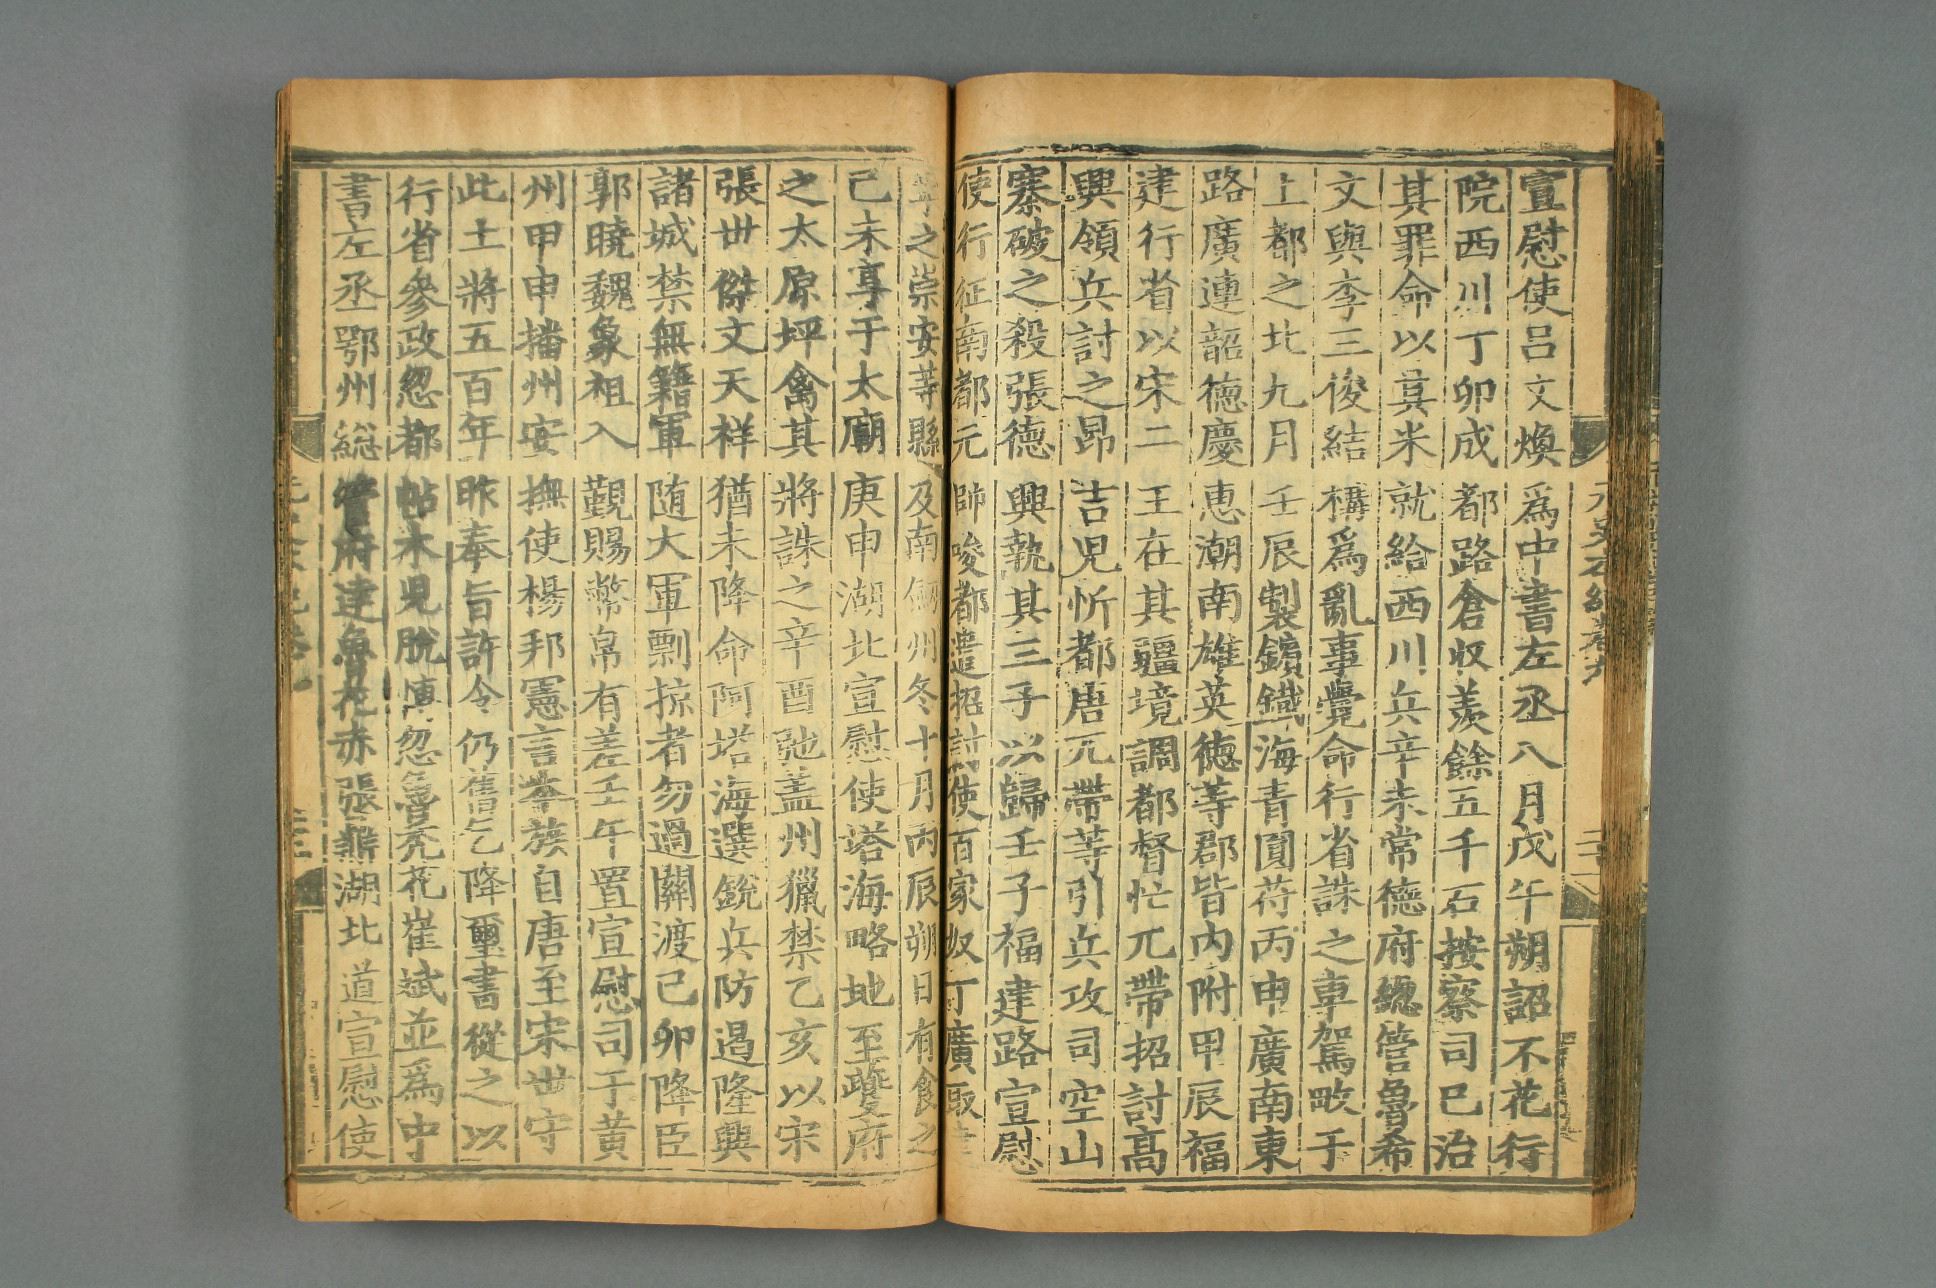 元史本紀卷九
宣慰使呂文煥爲中書左丞八月戊午朔詔不花行
院西川丁卯成都路倉収羨餘五千石按察司巳治
其罪命以其米就給西川兵辛未常德府總管魯希
文與李三俊結構爲亂事覺命行省誅之車駕畋于
上都之北九月壬辰製鑌鐵海青圓符丙申廣南東
路廣連韶德慶惠潮南雄英德等郡皆內附甲辰福
建行省以宋二王在其疆境調都督忙兀帶招討高
興領兵討之昂吉児忻都唐兀帶等引兵攻司空山
寨破之殺張德興執其三子以歸壬子福建路宣慰
使行征南都元帥唆都遣招討使百家奴丁廣取建
寧之崇安等縣及南劔州冬十月丙辰朔日有食之
己未享于太廟庚申湖北宣慰使塔海略地至夔府
之太原坪禽其將誅之辛酉弛蓋州獵禁乙亥以宋
張世傑文天祥猶未降命阿塔海選銳兵防遏隆興
諸城禁無籍軍随大軍剽掠者勿過關渡己卯降臣
郭曉魏象祖入覲賜幣帛有差壬午置宣慰司于黃
州甲申播州安撫使楊邦憲言本族自唐至宋世守
此土將五百年昨奉旨許令仍舊乞降璽書從之以
行省參政忽都帖木児脫博忽魯禿花崔斌並爲中
書左丞鄂州総管府達魯花赤張鼎湖北道宣慰使